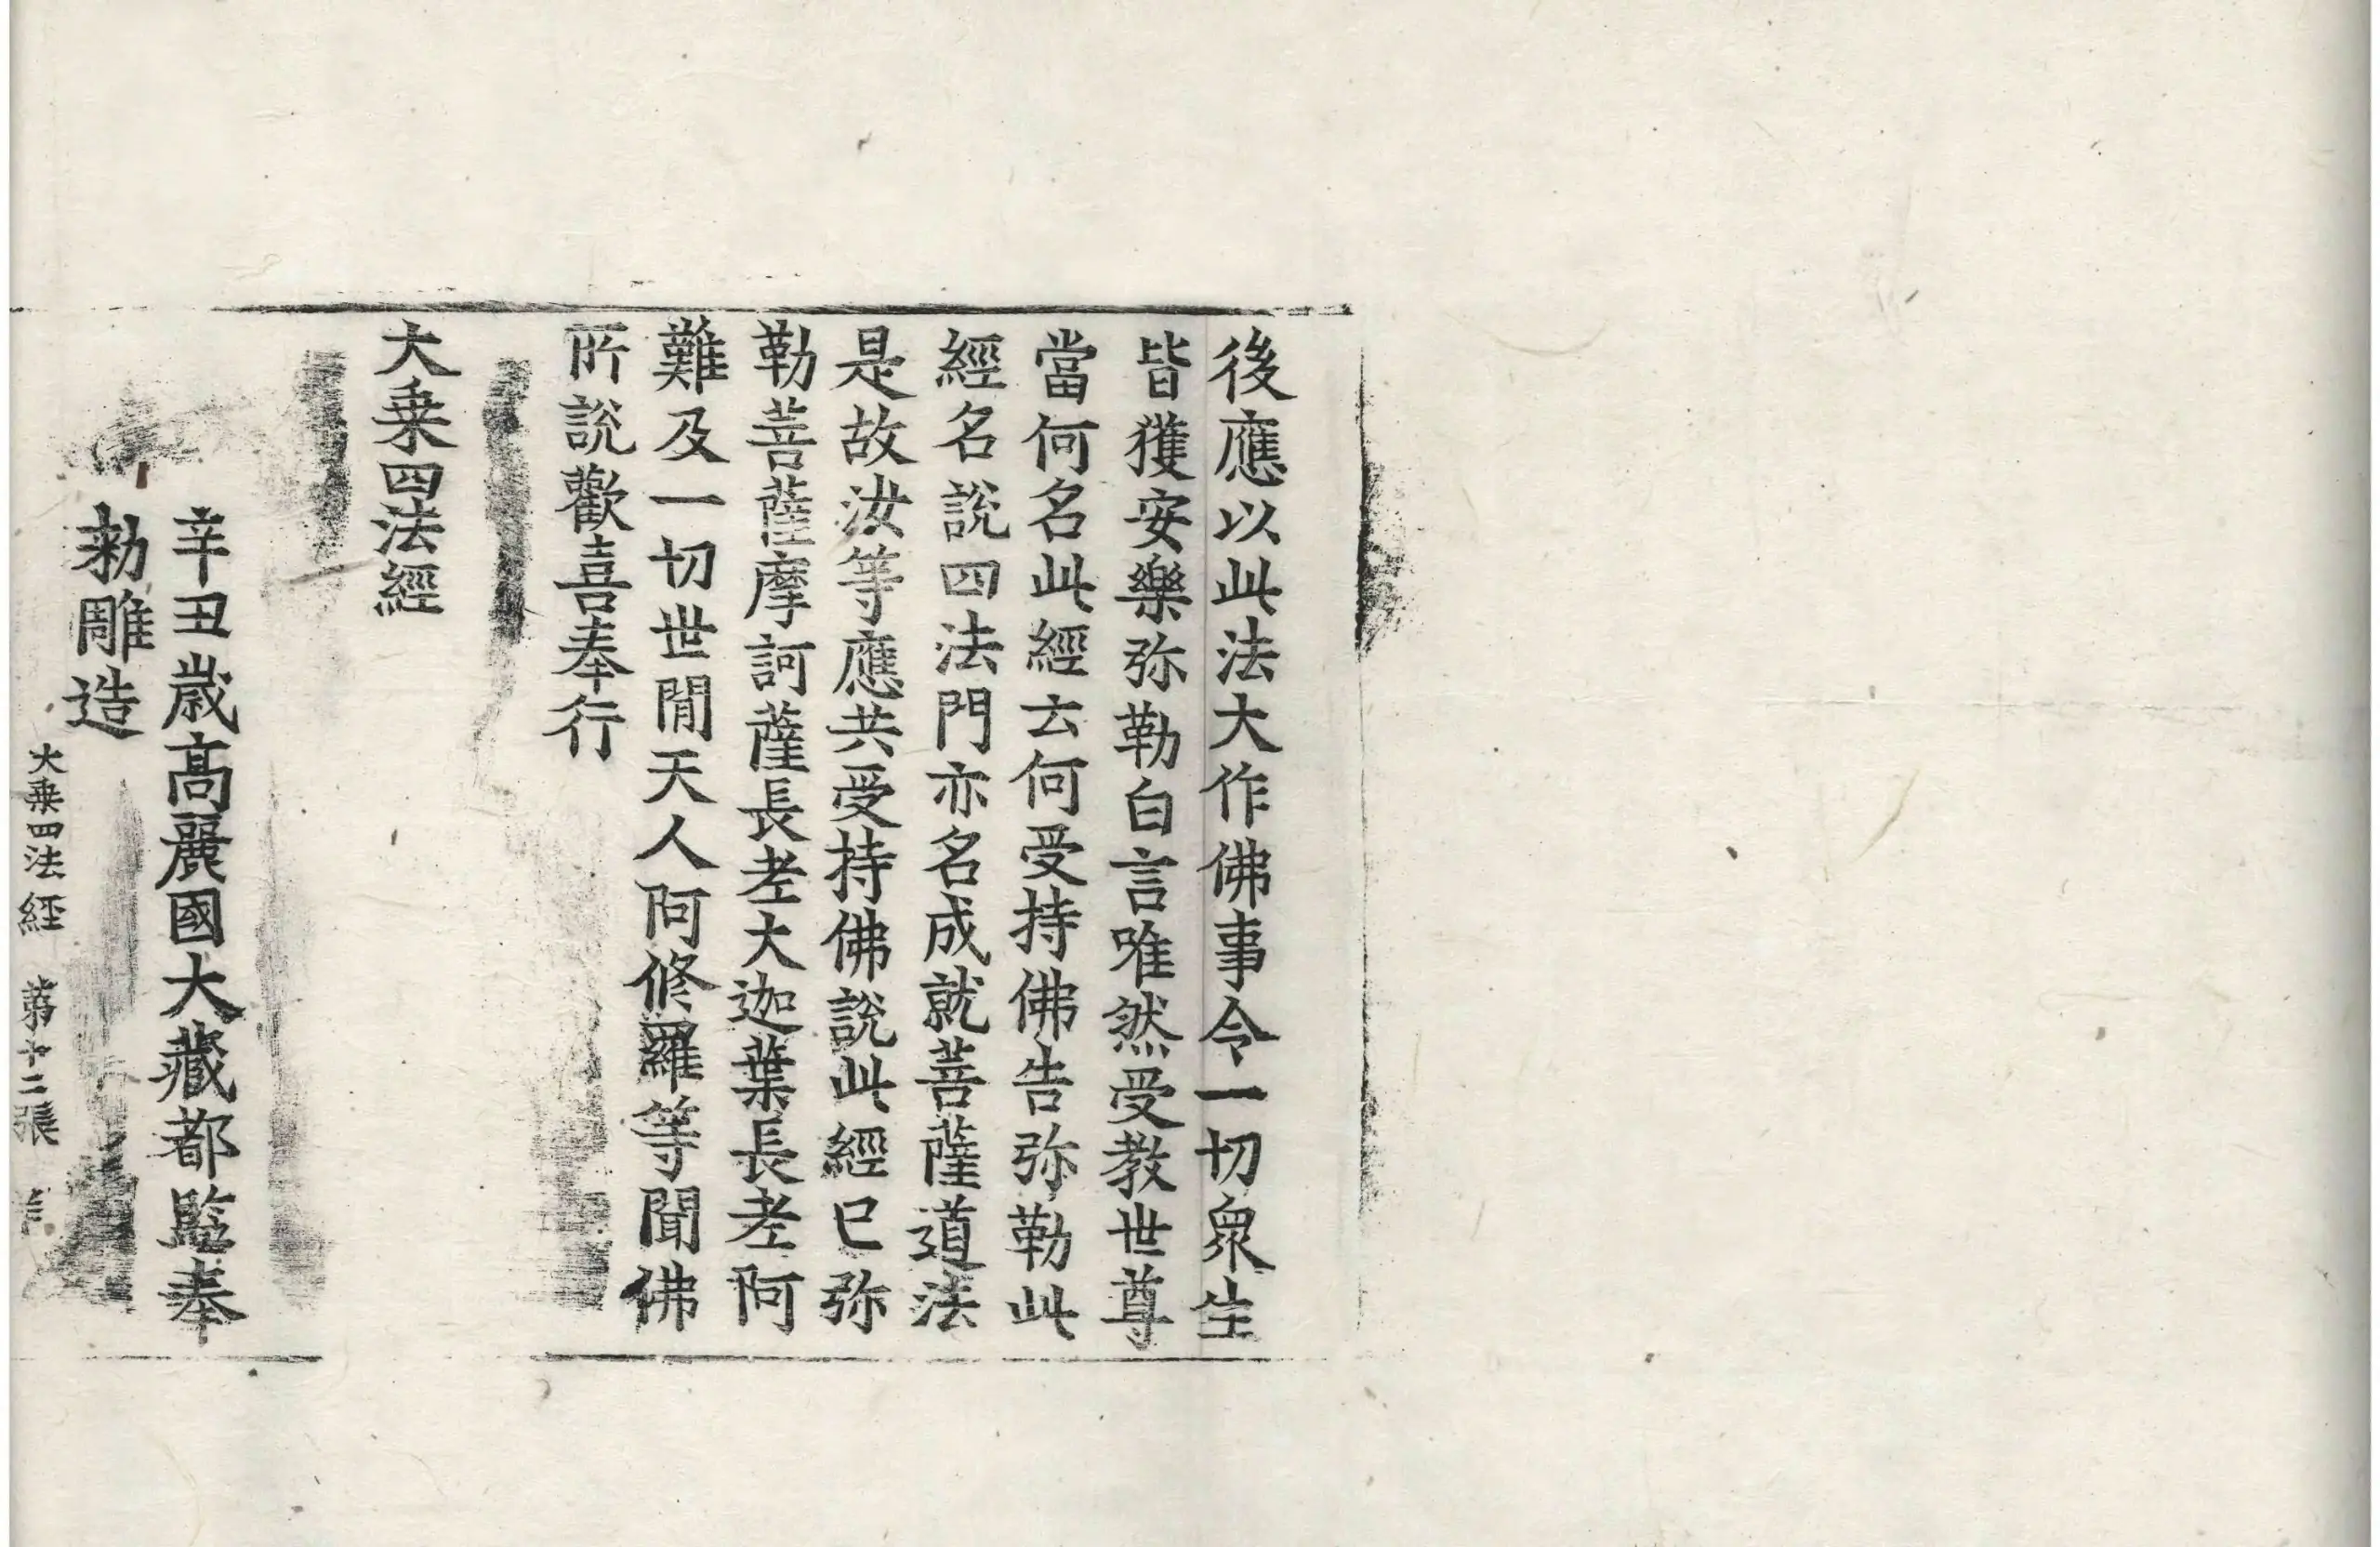 後應以此法大作佛事令一切衆生
皆獲安樂弥勒白言唯然受教世尊
當何名此經云何受持佛告弥勒此
經名說四法門亦名成就菩薩道法
是故汝等應共受持佛說此經已弥
勒菩薩摩訶薩長老大迦葉長老阿
難及一切世間天人阿修羅等聞佛
所說歡喜奉行
大乗四法經
辛丑歲高麗國大藏都監奉
勅雕造
大乗四法経 第十二張